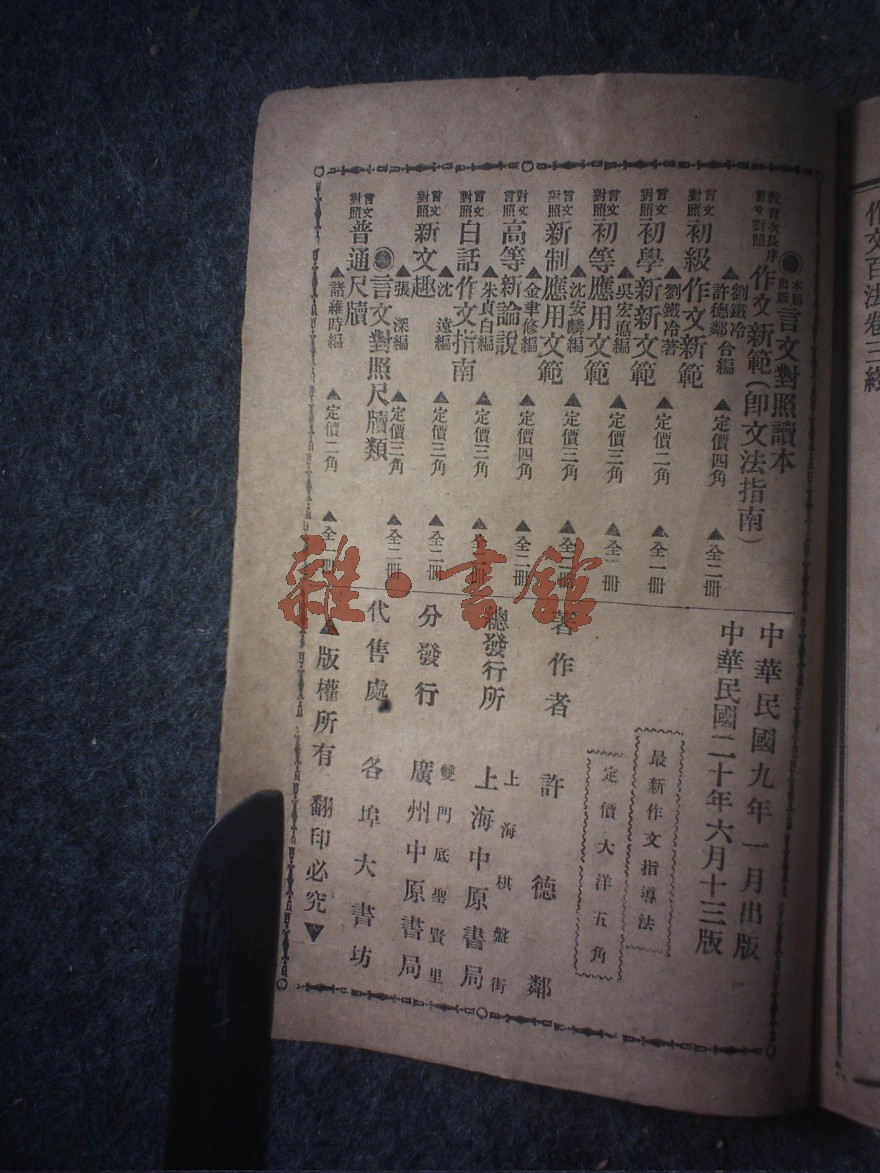 ◉本局出版言文對照讀本
教育次長序
言文對照
作文新範(即文法指南)
▲劉鐵冷
許德鄰合編
▲定價四角
▲全二冊
言文對照
初級作文新範
▲劉鐵冷著
▲定價二角
▲全一冊
言文對照
初學新新文範
▲吳宏惪編
▲定價三角
▲全一冊
言文對照
初等應用文範
▲沈安麟編
▲定價三角
▲全一冊
言文對照
新制應用文範
▲金聿修編
▲定價四角
▲全二冊
對文
言照
高等新論說
▲朱貞白編
▲定價三角
▲全
言文對照
白話作文指南
▲沈遠編
▲定價三角
▲全二冊
言文對照
新文趣
▲張深編
▲定價三角
▲全二冊
◉言文對照尺牘類
言文對照
普通尺牘
▲諸維時編
▲定價二角
▲全一冊
中華民國九年一月出版
中華民國二十年六月十三版
最新作文指導法
定價大洋五角
著作者 許德鄰
總發行所 上海棋盤街
上海中原書局
分發行 雙門底聖賢里
廣州中原書局
代售處 各埠大書坊
▲版權所有 翻印必究▼
作文百法卷三終
雜·書館